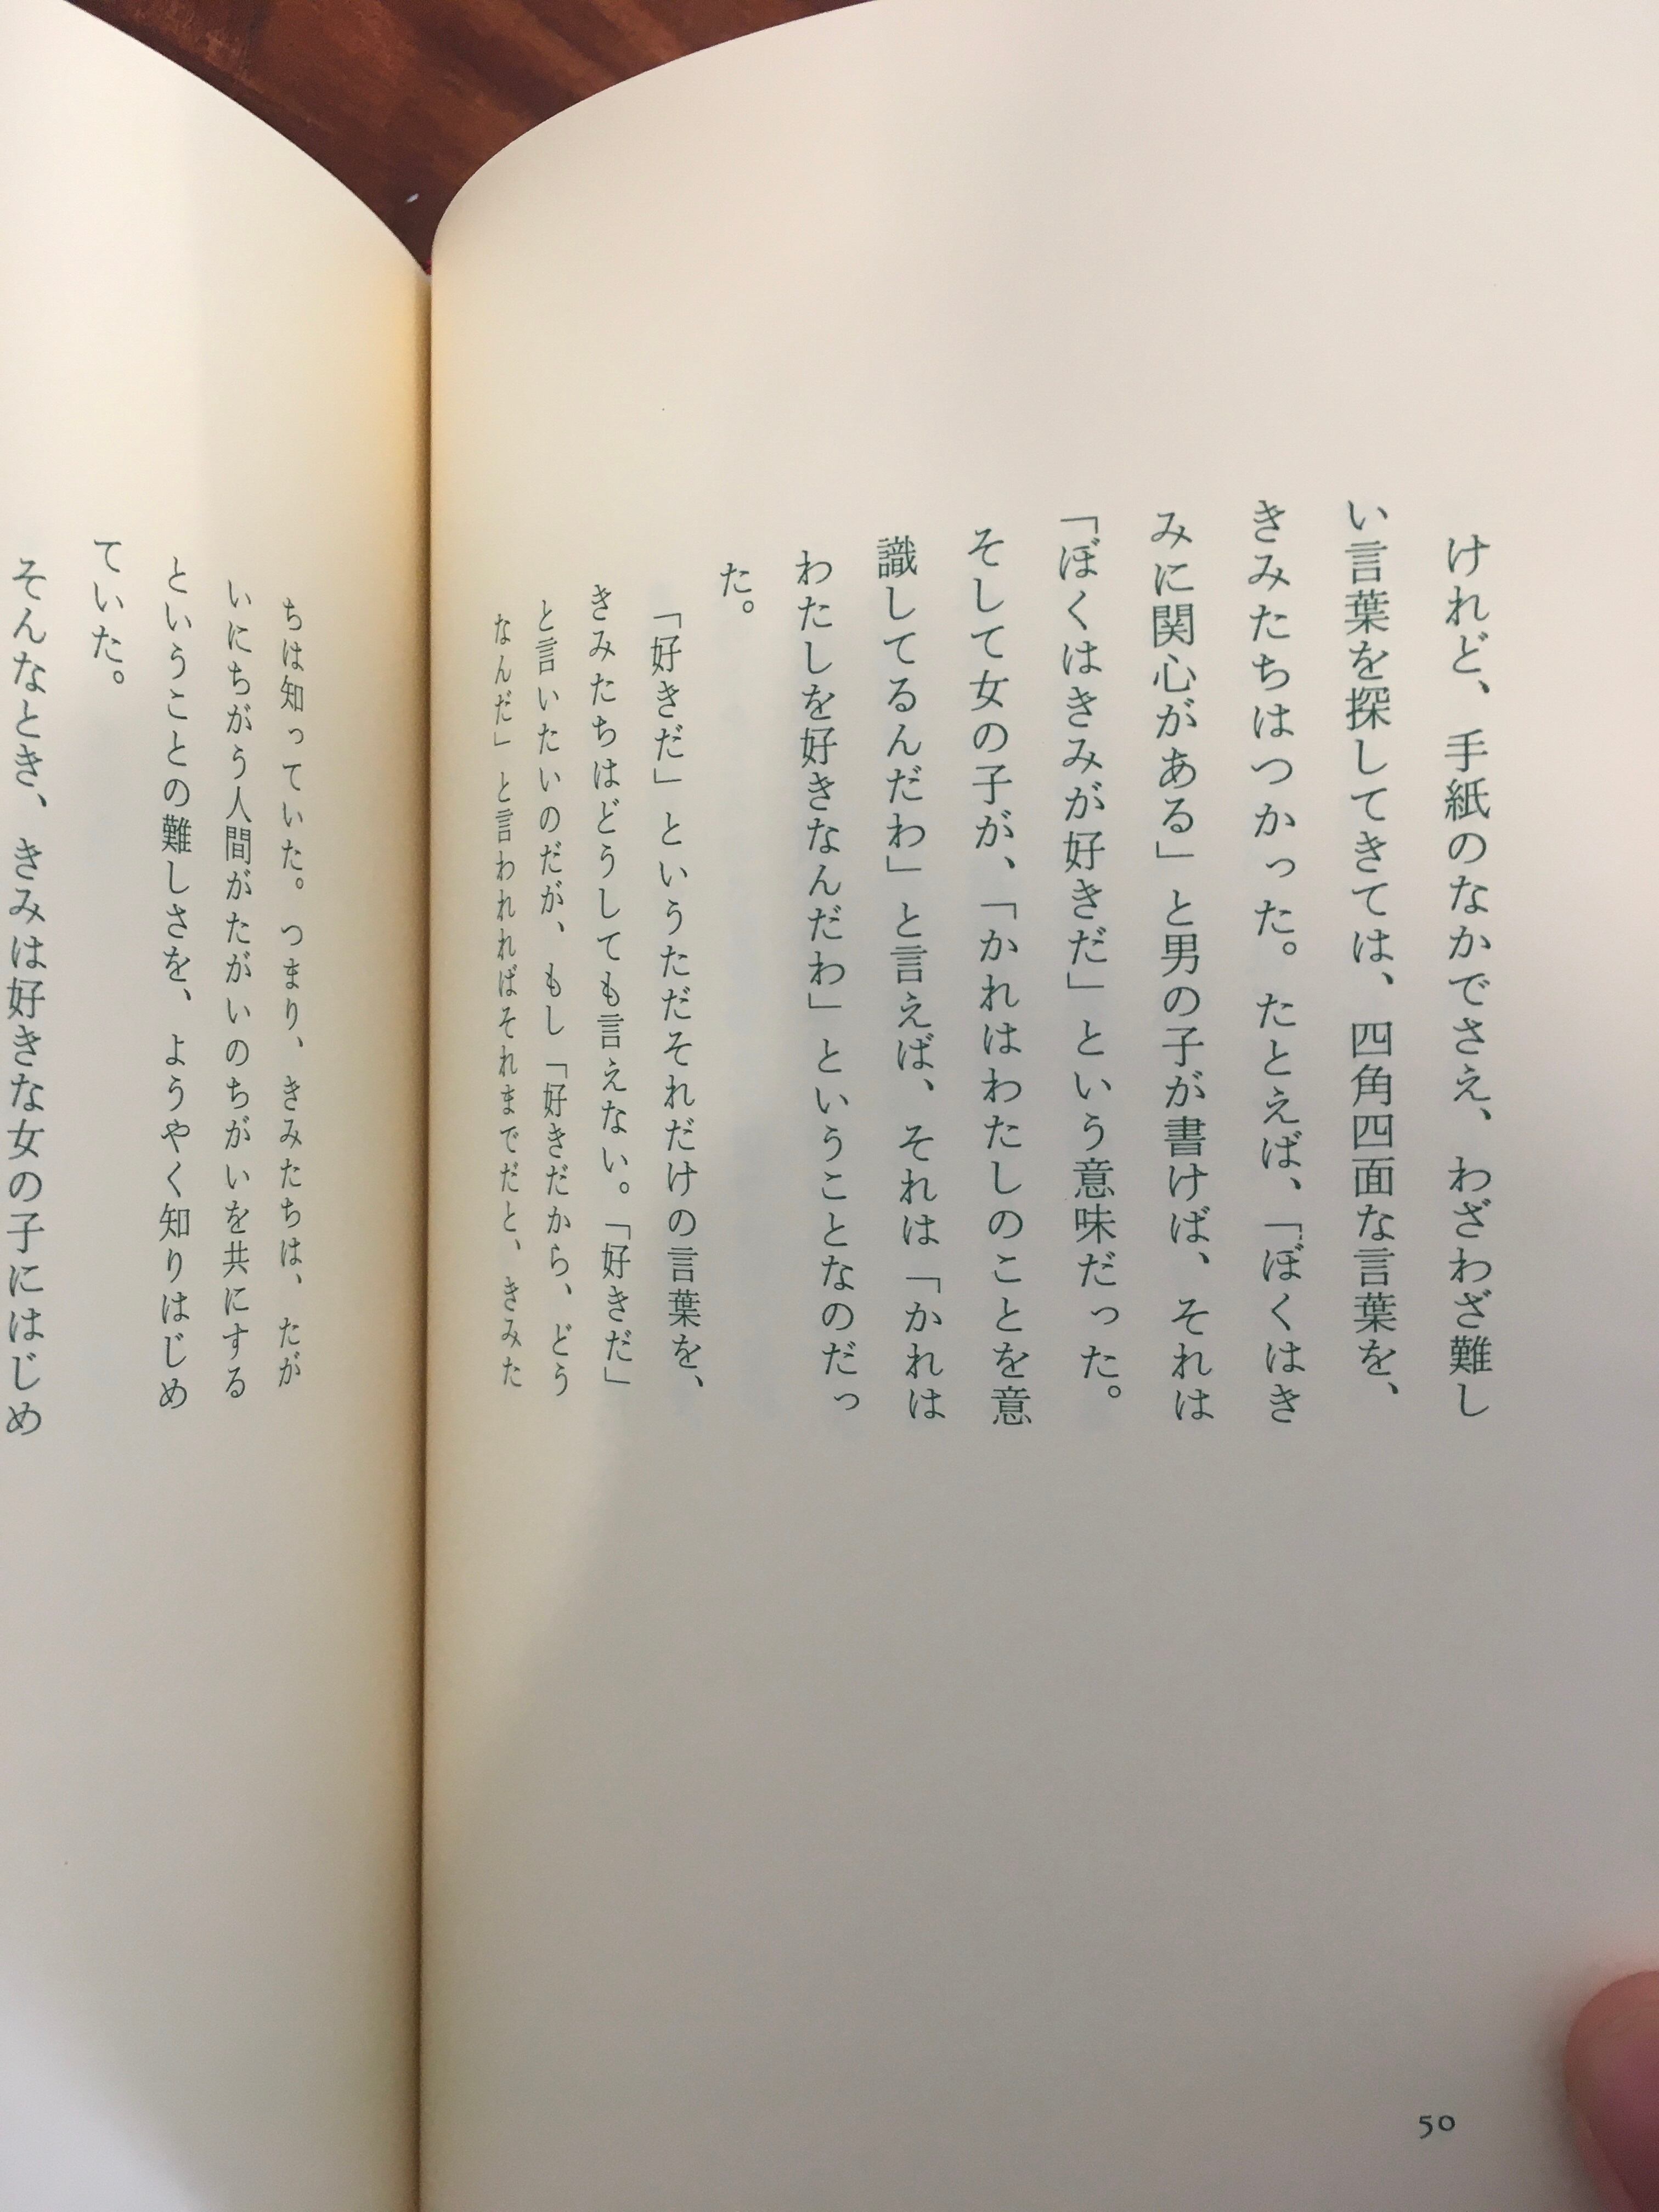 けれど、手紙のなかでさえ、わざわざ難し
い言葉を探してきては、四角四面な言葉を、
きみたちはつかった。たとえば、「ぼくはき
みに関心がある」と男の子が書けば、それは
「ぼくはきみが好きだ」という意味だった。
そして女の子が、「かれはわたしのことを意
識してるんだわ」と言えば、それは「かれは
わたしを好きなんだわ」ということなのだっ
た。
「好きだ」というただそれだけの言葉を、
きみたちはどうしても言えない。「好きだ」
と言いたいのだが、もし「好きだから、どう
なんだ」と言われればそれまでだと、きみた
50
ちは知っていた。つまり、きみたちは、たが
いにちがう人間がたがいのちがいを共にする
ということの難しさを、ようやく知りはじめ
ていた。
そんなとき、きみは好きな女の子にはじめ